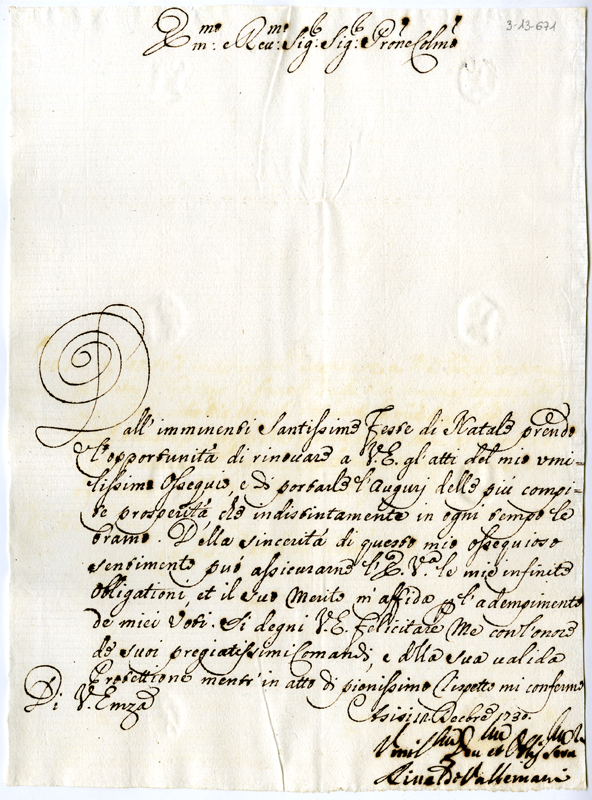 3-13-671
Em.mo e Rev.mo Sig.r Sig.r Prōne Colmo
Dall' imminenti Santissime Feste di Natale prendo
l'opportunità di rinovare a V.E. gl'atti del mio umi-
lissimo Ossequio, e di portarle l'Augurj delle più compi-
te prosperità che indistintamente in ogni tempo le
bramo. Della sincerità di questo mio ossequioso
sentimento può assicurarne l'E. V.ra le mie infinite
obligationi, et il suo Merito m'affida p l'adempimento
de miei Voti. Si degni V.E. felicitare Me con l'onore
de suoi pregiatissimi Comandi, e della sua valida
Protettione mentr' in atto di pienissimo Rispetto mi confermo
Di V. Emza
Assisi 18. Decbre 1730.
Umil.mo Dev.mo et Obl.mo Serv.
Rinaldo Vallemani